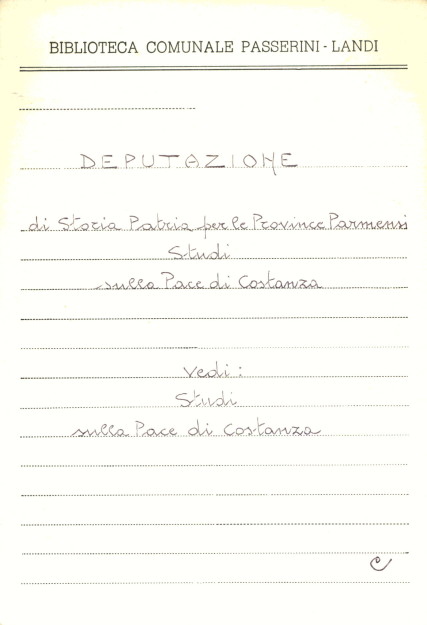 BIBLIOTECA COMUNALE PASSERINI - LANDI
DEPUTAZIONE
di Storia Patria per le Province Parmensi
Studi
sulla Pace di Costanza
Vedi:
Studi
sulla Pace di Costanza
C